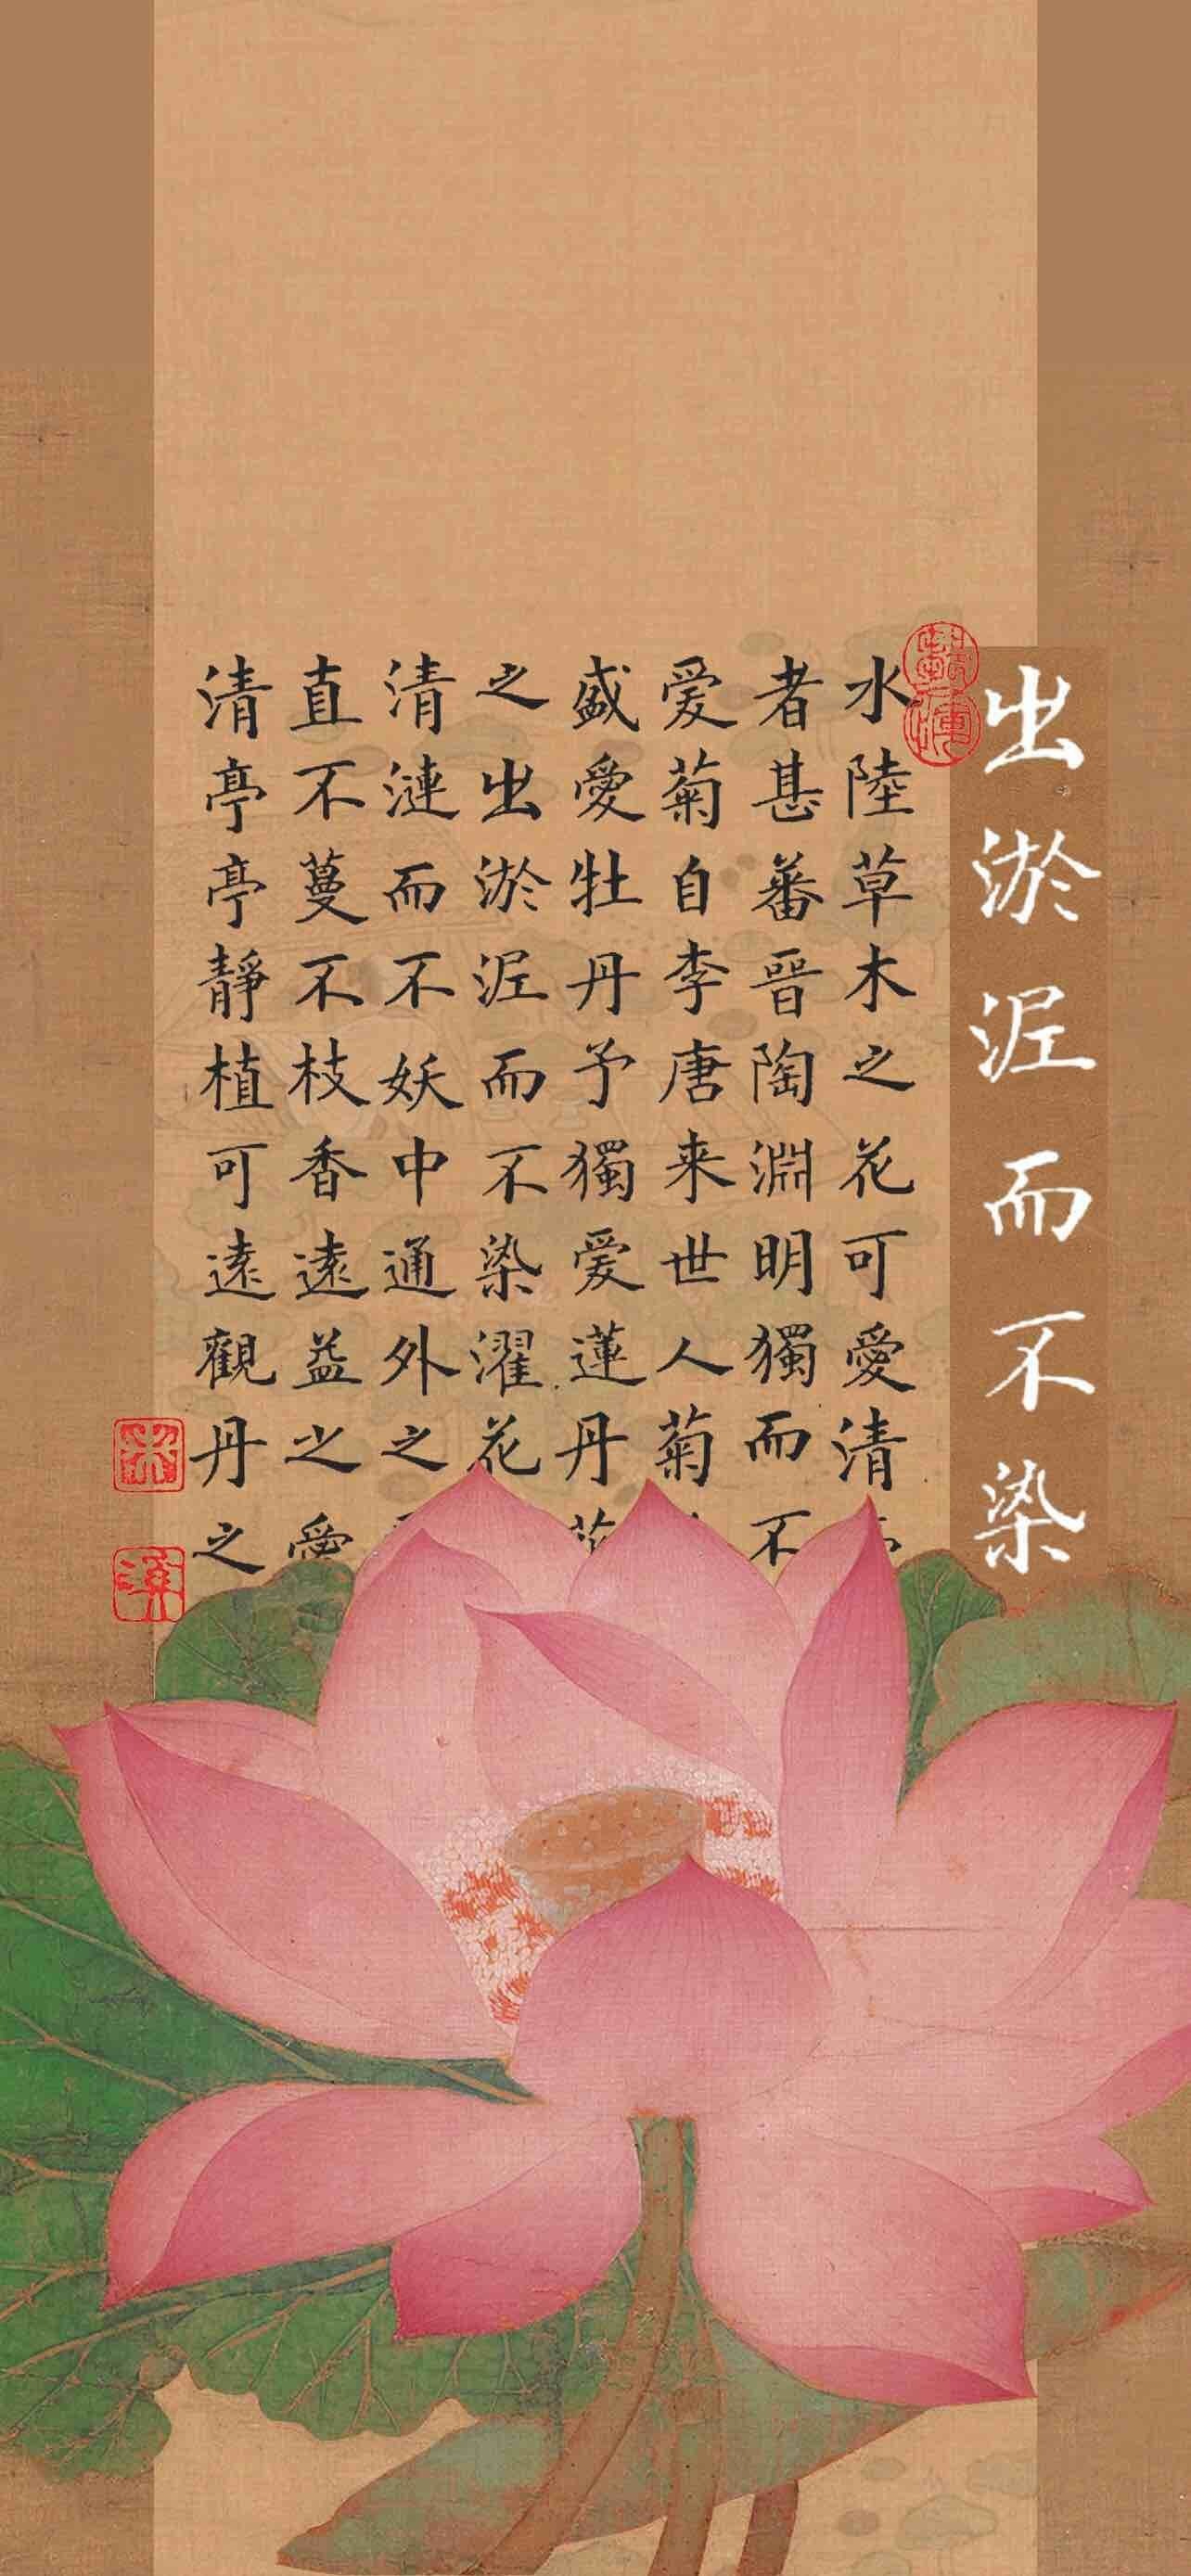 出淤泥而不染
水陸草木之花可愛清
者甚蕃晉陶淵明獨而不
爱菊自李唐来世人菊
盛愛牡丹予獨爱蓮丹
之出淤泥而不染濯花
清漣而不妖中通外之
直不蔓不枝香遠益之愛
清亭亭靜植可遠觀丹之